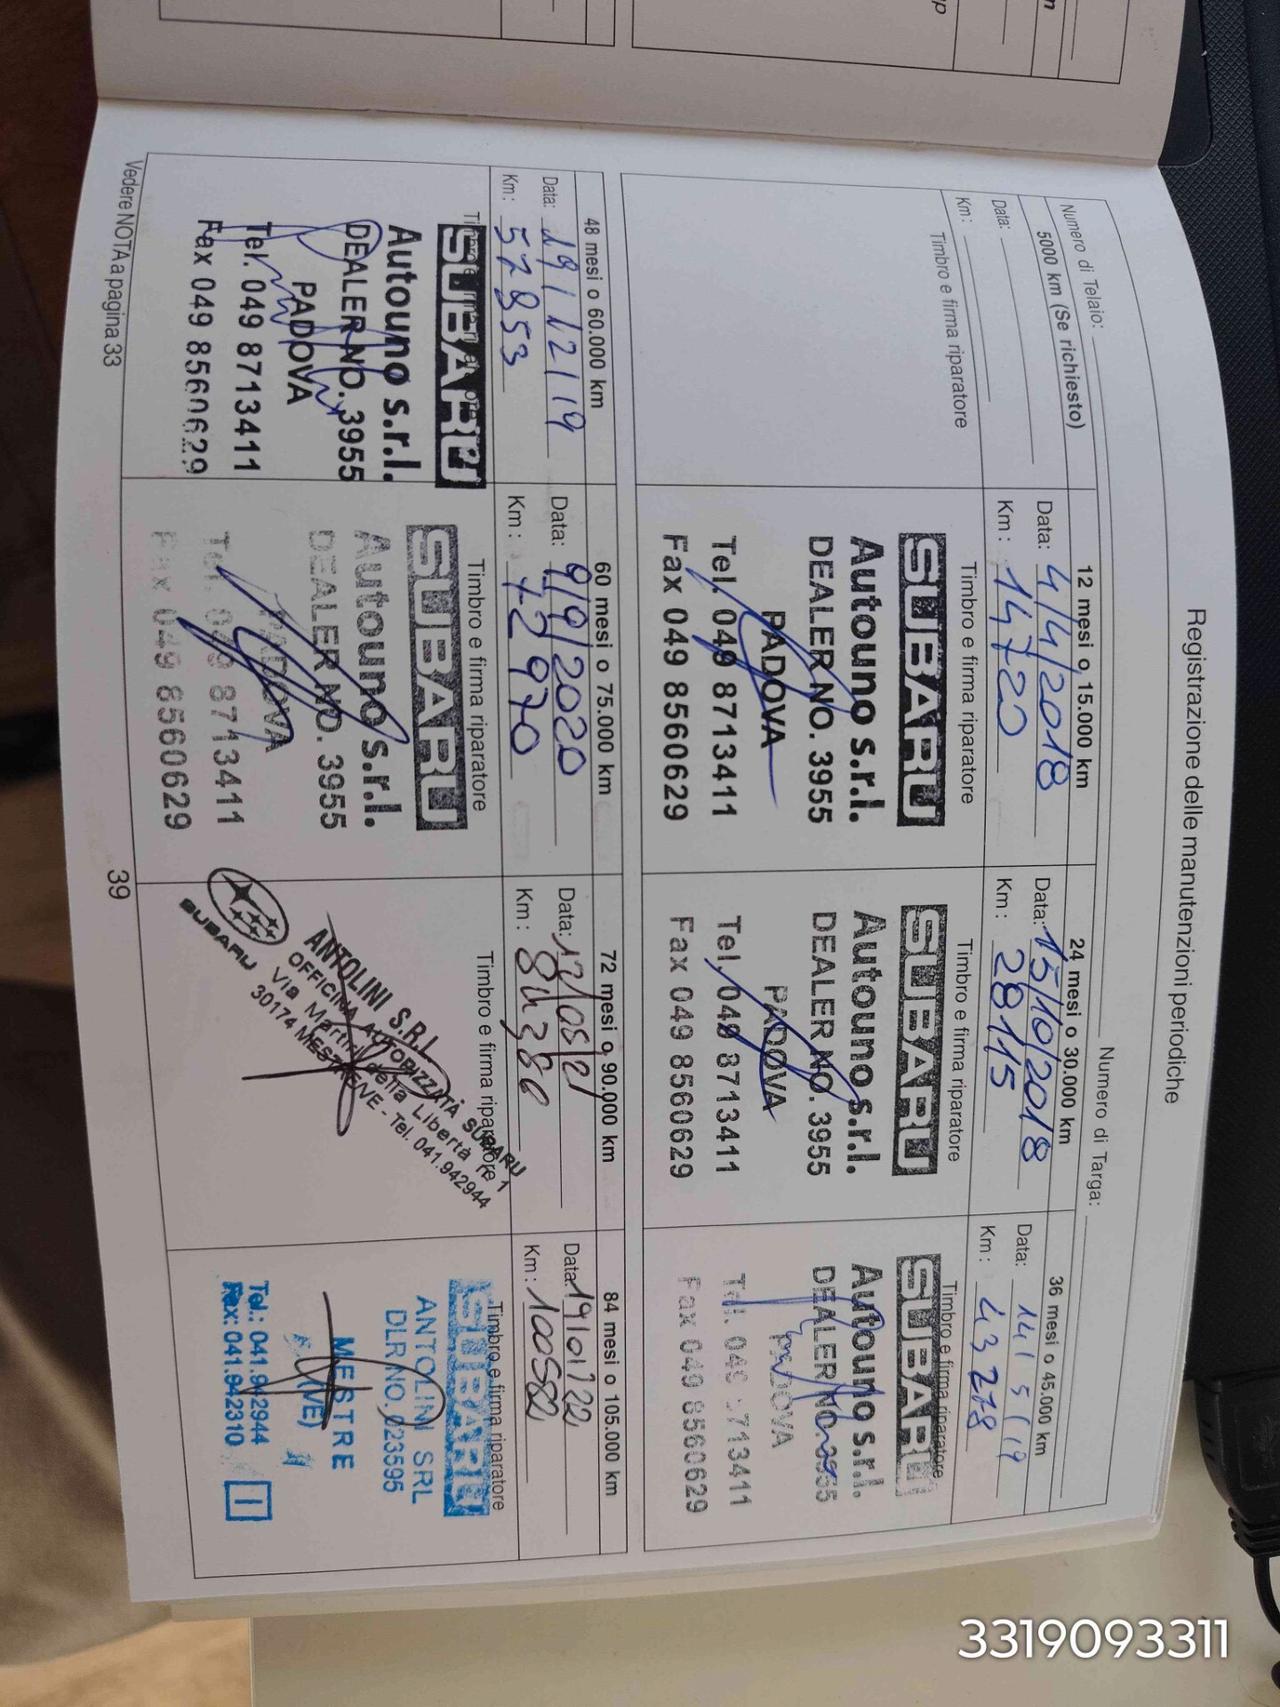 Registrazione delle manutenzioni periodiche
Numero di Telaio:
Numero di Targa:
5000 km (Se richiesto)
Data:
Km:
Timbro e firma riparatore
12 mesi o 15.000 km
Data: 4/4/2018
Km: 14720
Timbro e firma riparatore
SUBARU
Autouno s.r.l.
DEALER NO. 3955
PADOVA
Tel. 049 8713411
Fax 049 8560629
24 mesi o 30.000 km
Data: 15/10/2018
Km: 28115
Timbro e firma riparatore
SUBARU
Autouno s.r.l.
DEALER NO. 3955
PADOVA
Tel. 049 8713411
Fax 049 8560629
36 mesi o 45.000 km
Data: 14/5/19
Km: 43278
Timbro e firma riparatore
SUBARU
Autouno s.r.l.
DEALER NO. 3955
PADOVA
Tel. 049 8713411
Fax 049 8560629
48 mesi o 60.000 km
Data: 19/12/19
Km: 57853
SUBARU
Autouno s.r.l.
DEALER NO. 3955
PADOVA
Tel. 049 8713411
Fax 049 8560629
60 mesi o 75.000 km
Data: 9/9/2020
Km: 72970
Timbro e firma riparatore
SUBARU
Autouno s.r.l.
DEALER NO. 3955
PADOVA
Tel. 049 8713411
Fax 049 8560629
72 mesi o 90.000 km
Data: 17/05/21
Km:
Timbro e firma riparatore
SUBARU
ANTOLINI S.R.L.
OFFICINA AUTORIZZATA SUBARU
Via Martiri della Libertà n° 1
30174 MESTRE/VE - Tel. 041.942944
84 mesi o 105.000 km
Data: 19/01/22
Km: 100582
Timbro e firma riparatore
SUBARU
ANTOLINI SRL
DLR NO. 023595
MESTRE
(VE)
Tel.: 041.942944
Fax: 041.942310
1
Vedere NOTA a pagina 33
39
3319093311